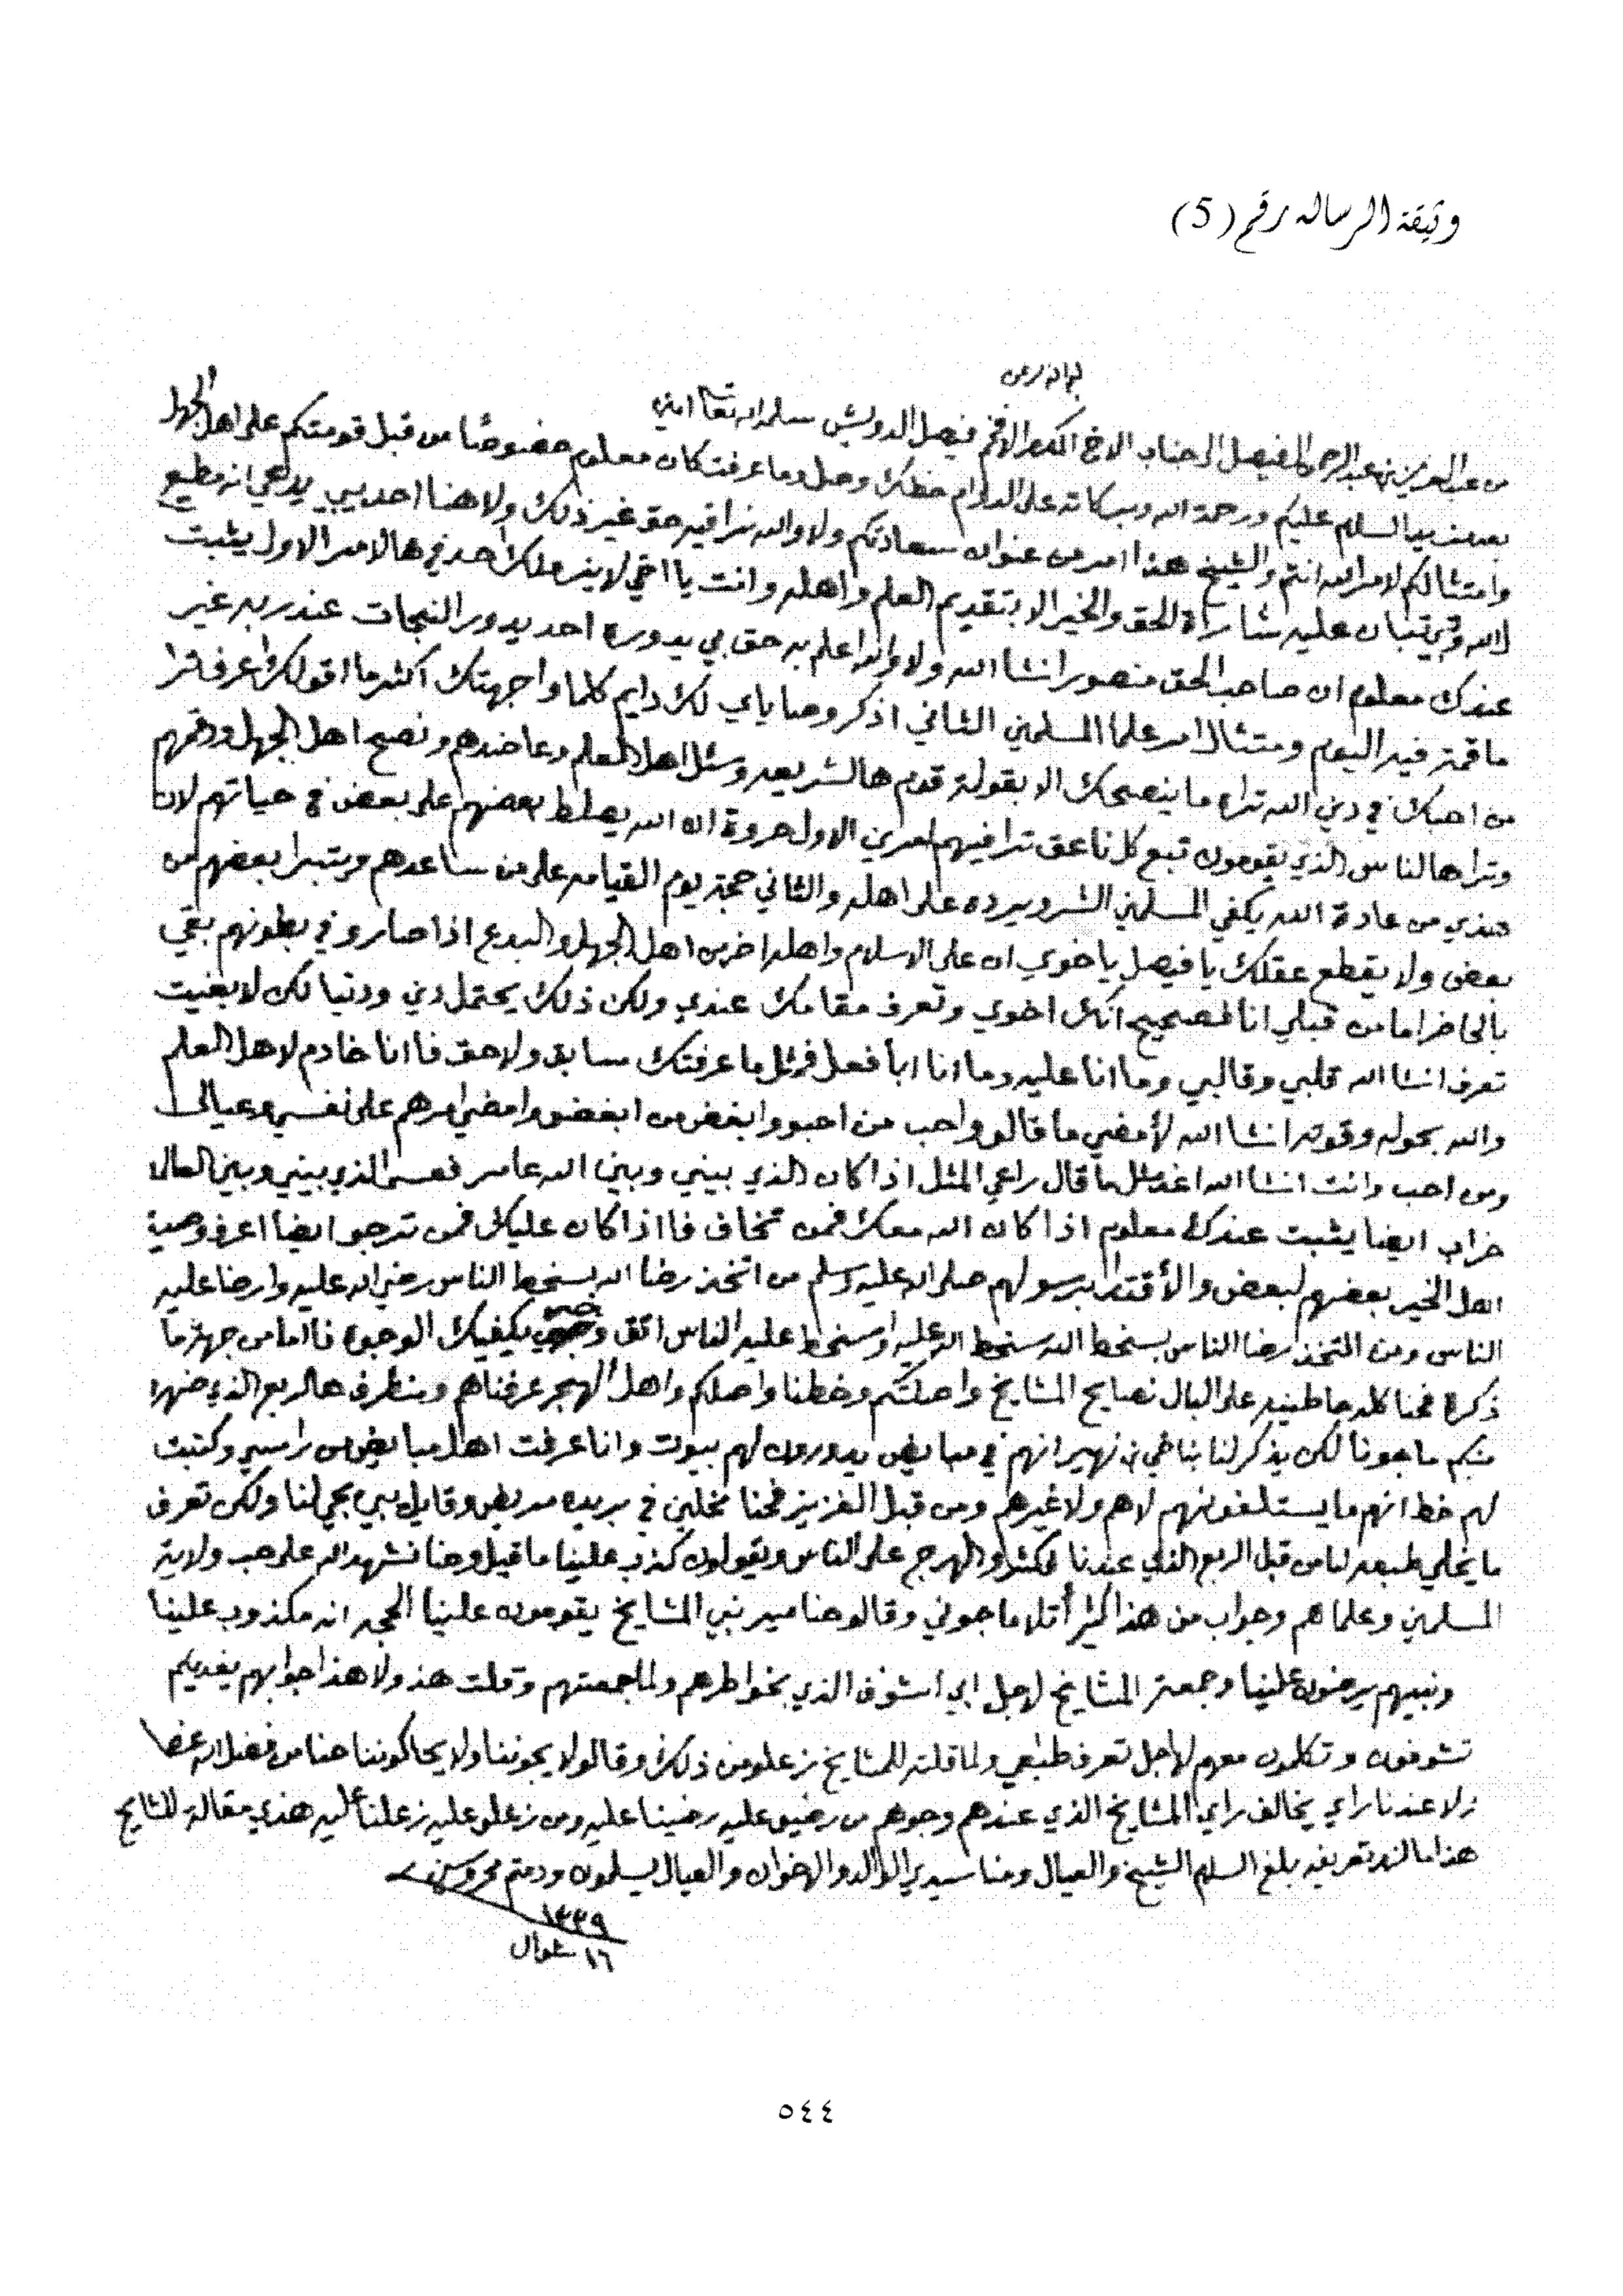 وثيقة الرسالة رقم (5)
من عبد العزيز بن عبد الرحمن الفيصل الى جناب الاخ المكرم الافخم فيصل الدويش سلمه الله تعالى امين
بعد مزيد السلام عليكم ورحمة الله وبركاته على الدوام خطك وصل وما عرفت كان معلوم خصوصًا من قبل قومتكم على اهل الجهل
وامتثالكم لامر الله انتم والشيخ هذا امر من عنوان سعادتكم ولا والله نرا فيه حق غير ذلك ولا هنا احد يبي يدعي انه مطيع
لله ويتبان عليه شارة الحق والخير الا بتقديم العلم واهله وانت يا اخي لا يغرملك احد في هالامر الاول يثبت
عندك معلوم ان صاحب الحق منصور انشا الله ولا والله اعلم به حق بي يدوره احد يدور النجات عند ربه غير
ما قمتم فيه اليوم ومتثال امر علما المسلمين الثاني اذكر وصاياي لك دايم كلما واجهتك اكثر ما اقول لك اعرف ترا
من احبك في دين الله تراه ما ينصحك الا بقولة قدم هالشريعه وسئل اهل العلم وعاضدهم ونصح اهل الجهل وقمهم
وترا هالناس الذي يقومون تبع كل ناعق ترا فيهم امرين الاول مروة ان الله يصلط بعضهم على بعض في حياتهم لان
هذي من عادة الله يكفي المسلمين الشر ويرده على اهله والثاني حجة يوم القيامه على من ساعدهم ويتبرا بعضهم من
بعض ولا يقطع عقلك يا فيصل ياخوي ان على الاسلام واهله اخر من اهل الجهل والبدع اذا صارو في بطونهم بقي
بالخاطر اما من قبلي انا الصحيح انك اخوي وتعرف مقامك عندي ولكن ذلك يحتمل دين ودنيا لكن لا بغيت
تعرف انشا الله قلبي وقالبي وما انا عليه وما انا ابأ فعل فمثل ما عرفتك سابق ولاحق فا انا خادم لاهل العلم
والله بحوله وقوته انشا الله لأمضي ما قالو واحب من احبو وابغض من ابغضو وامضي امرهم على نفسي وعيالي
ومن احب وانت انشا الله اغد مثل ما قال راعي المثل اذا كان الذي بيني وبين الله عامر فعسى الذي بيني وبين العالم
خراب ايضا يثبت عندك معلوم اذا كان الله معك فمن تخاف فا اذا كان عليك فمن ترجو ايضأ اعرف وصية
اهل الخير بعضهم لبعض والأقتدا برسولهم صلى الله عليه وسلم من اتخذ رضا الله بسخط الناس رضي الله عليه وارضا عليه
الناس ومن التخذ رضا الناس بسخط الله سخط الله عليه اوسخط عليه الناس اتق وجه يكفيك الوجوه فا اما من جهة ما
ذكرة فحنا كله حاطينه على البال نصايح المشايخ واصلتكم وخطنا واصلكم واهل الهجر عرفناهم ومنطرف هالربع الذي ضهرو
منكم ما جونا لكن يذكر لنا بناخي بن نهير انهم في مبايض يدورون لهم بيوت وانا عرفت اهل مبايض من راسي وكتبت
لهم خط انهم ما يستلفونهم لاهم ولا غيرهم ومن قبل الغزيز فحنا مخلين في بريده مريض وقايل يبي يجي لنا ولكن تعرف
ما يخلي طبعه اما من قبل الربع الذي عندنا فكثرو الهرج على الناس ويقولون كذب علينا ما قيل وحنا نشهد الله على حب ولاية
المسلمين وعلماهم وجواب من هذا كثير أتلا ما جوني وقالو حنا ميربني المشايخ يقومون علينا الحجه انه مكذوب علينا
ونبيهم يرضون علينا وجمعتر المشايخ لاجل ابي اشوف الذي بخواطرهم ولما جمعتهم وقلت هذولا هذا جوابهم يفديكم
تشوفون وتكلمون معهم لأجل تعرف طبعي ولما قلته للمشايخ زعلو من ذلك وقالو لا يجوننا ولا يحاكوننا حنا من فضل الله
لا عندنا راي يخالف راي المشايخ الذي عندهم وجوهم من رضيو عليه رضينا عليه ومن زعلو عليه زعلنا عليه هذي مقالة للشايخ
هذا ما لزم تعريفه بلغ السلام الشيخ والعيال ومنا سيدي الوالد والاخوان والعيال يسلمون ودمتم محروسين
١٣٣٩
١٦ شوال
٥٤٤